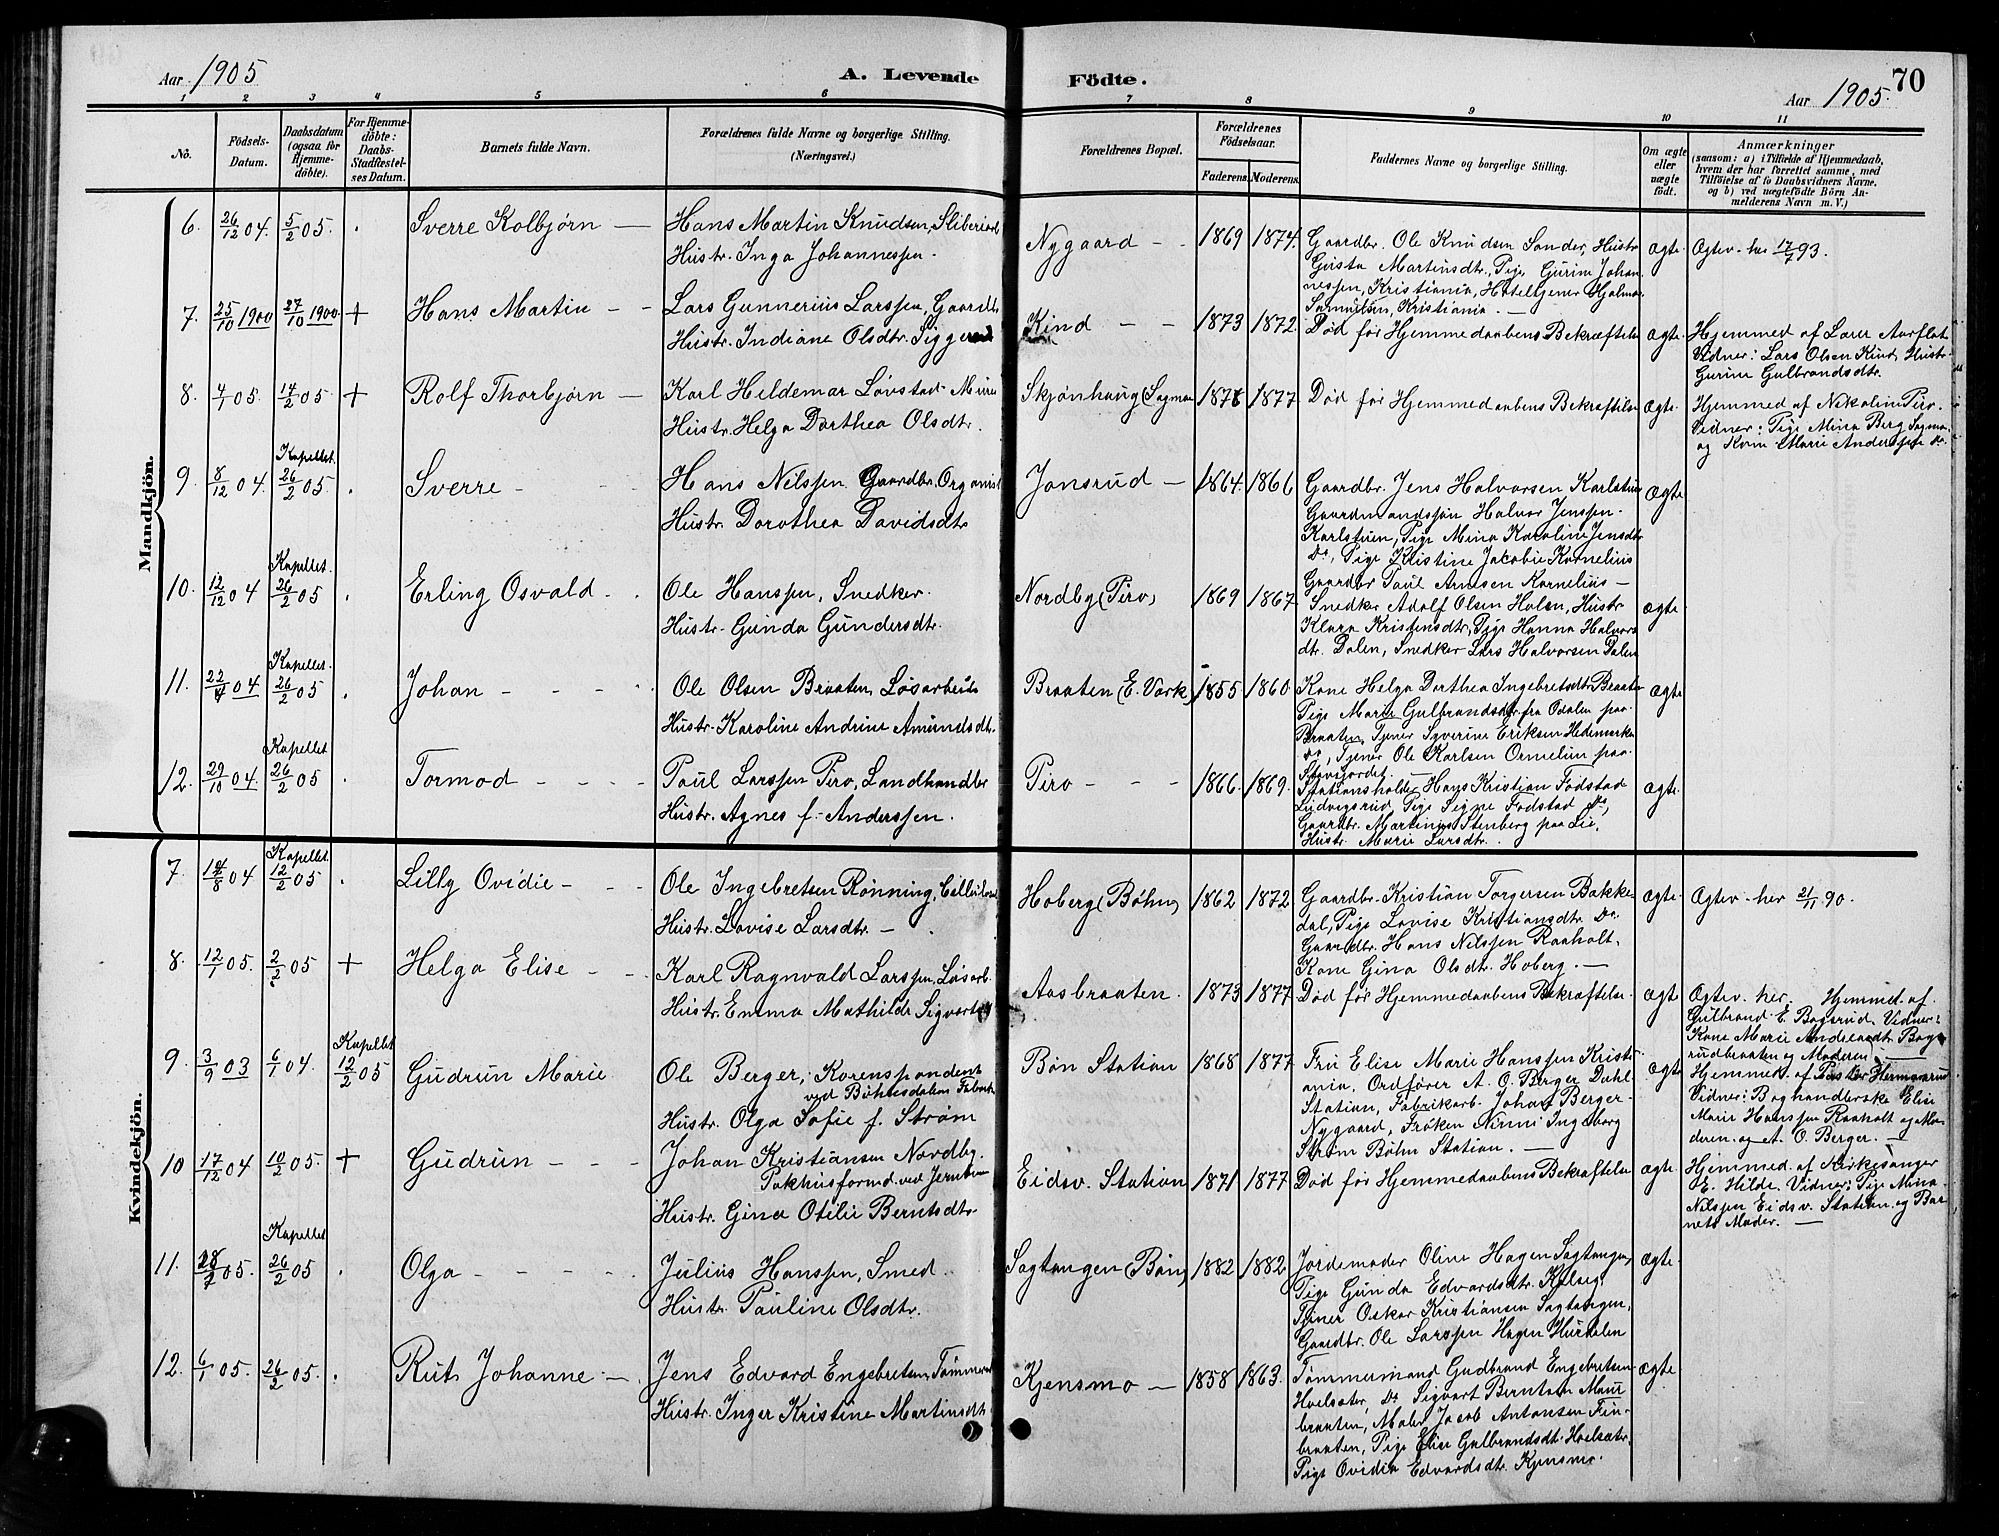 Aar 1905
A. Levende
Födte.
Aar 1905.
70
1 2 3 4 5 6 7 8 9 10 11
No.
Födsels-Datum.
Daabsdatum (ogsaa for Hjemmedöbte).
For Hjemmedöbte: Daabs-Stadfæstelses Datum.
Barnets fulde Navn.
Forældrenes fulde Navne og borgerlige Stilling.
(Næringsvei.)
Forældrenes Bopæl.
Forældrenes Födselsaar.
Faderens. Moderens.
Faddernes Navne og borgerlige Stilling.
Om ægte eller uægte födt.
Anmærkninger
(saasom: a) i Tilfælde af Hjemmedaab, hvem der har forrettet samme, med Tilföielse af to Daabsvidners Navne, og b) ved uegtefödte Börn Anmelderens Navn m. V.)
Mandkjön.
6. 26/12 04. 5/2 05. Sverre Kolbjørn
Hans Martin Knudsen,
Hustr. Inga Johannessen.
Nygaard 1869 1874.
Gaardbr. Ole Knudsen Sander, Hustr.
Gusta Martinsdtr., Pige Gurine Johan
nessen, Kristiania, Hoteltjener Hjalmar
Samuelsen, Kristiania.
Ægte Ægtev. her 17/7 93.
7. 25/10 1900 27/10 1900. + Hans Martin
Lars Gunnerius Larssen, Gaardb
Hustr. Indiane Olsdtr.
Kind 1873 1872.
Død før Hjemmedaabens Bekræftelse
Ægte
Hjemmed af Lærer Aarflot
Vidner: Lars Olsen Kind, Hustr.
Gurine Gulbrandsdtr.
8. 4/1 05. 14/2 05. + Rolf Thorbjørn
Karl Hildemar Løvstad
Hustr. Helga Dorthea Olsdtr.
Skjønhaug 1877.
Død før Hjemmedaabens Bekræftelse
Ægte
Hjemmed af Nikoline Piro.
Vidner: Pige Mina Berg
og Kone Marie Anderssen do
9. 8/12 04. Kapellet 26/2 05. Sverre
Hans Nilssen Gaardbr. Organist
Hustr. Dorothea Davidsdtr
Jonsrud 1864. 1866
Gaardbr. Jens Halvorsen Karlstuen
Gaardmandssøn Halvor Jenssen
Karlstuen, Pige Mina Karoline Jensdtr
Do, Pige Kristine Jacobie Kornelius
Gaardbr Paul Arnesen Kornelius
Ægte
10. 12/12 04 Kapellet 26/2 05 Erling Osvald
Ole Hanssen, Snedker.
Hustr. Gunda Gundersdtr.
Nordby (Piro) 1869 1867
Snedker Adolf Olsen Holen, Hustr
Klara Kristensdtr, Pige Hanna Halvors
dtr. Dalen, Snedker Lars Halvorsen Dalen
Ægte
11. 04 Kapellet 26/2 05 Johan
Ole Olsen Braaten, Løsarbeider
Hustr. Karoline Andrine Amundsdtr.
Braaten (E. Værk) 1855 1860.
Kone Helga Dorthea Ingebretsdtr Braaten
Pige Marie Gulbrandsdtr fra Odalen paa
Braaten, Tjener Syverine Eriksen Hedemarken
do, Tjener Ole Karlsen Ormelien paa
Ægte
12. 29/10 04. Kapellet 26/2 05 Tormod
Paul Larssen Piro, Landhandler
Hustr. Agnes f. Anderssen.
Piro 1866. 1869.
Stationsholder Hans Kristian Fodstad
Ludvigsrud, Pige Signe Fodstad Do,
Gaardbr. Martinius Stenberg paa Lie,
Hustr. Marie Larsdtr.
Ægte
Kvindekjön.
7. 04 Kapellet 12/2 05. Lilly Ovidie
Ole Ingebretsen Rønning,
Hustr. Lovise Larsdtr.
Hoberg (Bøhn) 1862 1872
Gaardbr. Kristian Torgersen Bakke
dal, Pige Lovise Kristiansdtr Do
Gaardbr. Hans Nilssen Raaholt
Kone Gina Olsdtr. Hoberg.
Ægte Ægtev. her 21/11 90.
8. 12/1 05. 2/2 05 + Helga Elise
Karl Ragnvald Larssen, Løsarb.
Hustr. Emma Mathilde
Aasbraaten. 1873 1877
Død før Hjemmedaabens Bekræftelse
Ægte
Ægtev. her. Hjemmed. af
Gulbrand E. Bogsrud, Vidner:
Kone Marie Bogs
rudbraaten og Moderen
9. 3/9 03 6/1 04. Kapellet 12/2 05 Gudrun Marie
Ole Berger, Korrespondent
ved Bøhnsdalen Fabrik
Hustr. Olga Sofie f. Strøm
Bøn Station 1868 1877
Fru Elise Marie Hanssen Kristi
ania, Ordfører A. O. Berger Dahl
Station, Fabrikarb. Johan Berger
Nygaard, Frøken Ninni Ingeborg
Strøm Bøhn Station.
Ægte
Hjemmed. af Pastor Hermanrud
Vidner: Boghandlerske Elise
Marie Hanssen Raaholt og Mo
deren og A. O. Berger.
10 17/12 04 10/2 05. + Gudrun
Johan Kristiansen Nordby.
Pakhusformd. ved Jernban
Hustr. Gina Otilie Berntsdtr
Eidsv. Station 1871 1877
Død før Hjemmedaabens Bekræftelse
Ægte
Hjemmed. af Kirkesanger
E. Hilde. Vidner: Pige Mina
Nilssen Eidsv. Station og Bar
nets Moder.
11. 05. Kapellet 26/2 05 Olga
Julius Hanssen, Smed.
Hustr. Pauline Olsdtr.
Sagtangen (Bøn) 1882 1882
Jordemoder Oline Hagen Sagtangen,
Pige Gunda Edvardsdtr.
Tjener Oskar Kristiansen Sagtangen,
Gaardbr. Ole Larssen Hagen Hurdalen
Ægte.
12. 6/1 05. 26/2 05. Rut Johanne
Jens Edvard Engebretsen,
Hustr. Inger Kristine Martinsdtr
Kjensmo 1858 1863.
Tømmermand Gudbrand Engebretsen
Hvelsæter, Do Sigvart Berntsen
braaten, Maler Jacob Antonsen Fin
braaten, Pige Elise Gulbrandsdtr. Hvelsæter,
Pige Ovidia Edvardsdtr. Kjensmo.
Ægte